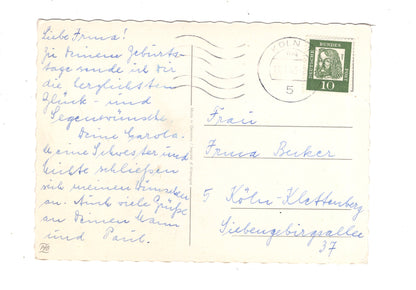 Liebe Irma!
Zu Deinem Geburts-
tage sende ich Dir
die herzlichsten
Glück- und
Segenwünsche
Deine Carola.
Meine Schwester und
Nichte schließen
sich meinen Wünschen
an. Auch viele Grüße
an Deinen Mann
und Paul.
KÖLN
5
DEUTSCHE BUNDESPOST
10
Frau
Irma Becker
5 Köln-Klettenberg
Siebengebirgsallee
37